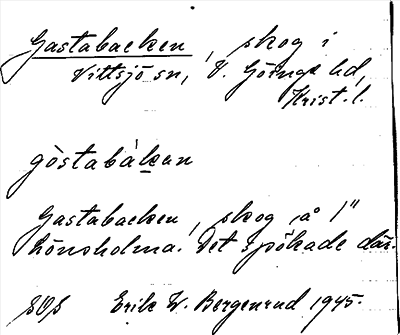 Gastabacken, skog i
Vittsjö sn, V. Göinge hd,
Krist. l.
gòstabàkan
Gastabacken, skog å 1"
Hönsholma. Det spökade där.
SOS Erik W. Bergenrud 1945.